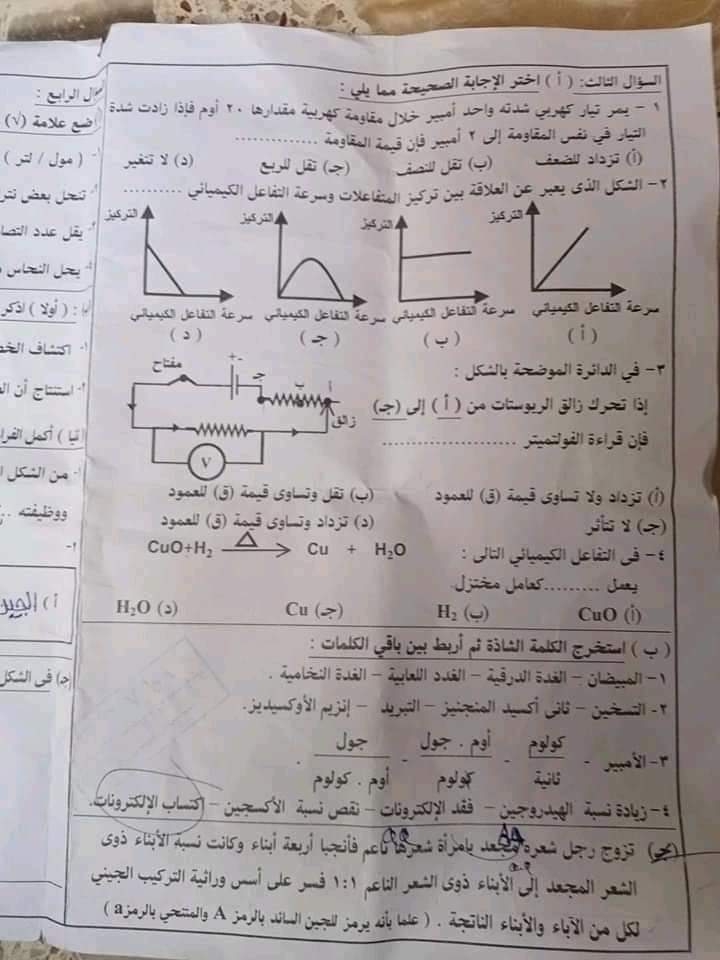 السؤال الثالث: ( أ ) اختر الإجابة الصحيحة مما يلي :
١ – يمر تيار كهربي شدته واحد أمبير خلال مقاومة كهربية مقدارها ٢٠ أوم فإذا زادت شدة
التيار في نفس المقاومة إلى ٢ أمبير فإن قيمة المقاومة ..............
(أ) تزداد للضعف (ب) تقل للنصف (جـ) تقل للربع (د) لا تتغير
٢– الشكل الذى يعبر عن العلاقة بين تركيز المتفاعلات وسرعة التفاعل الكيميائي ..........
التركيز التركيز التركيز التركيز
سرعة التفاعل الكيميائي سرعة التفاعل الكيميائي سرعة التفاعل الكيميائي سرعة التفاعل الكيميائي
( أ ) ( ب ) ( جـ ) ( د )
٣– في الدائرة الموضحة بالشكل :
إذا تحرك زالق الريوستات من ( أ ) إلى (جـ)
فإن قراءة الفولتميتر ....................
مفتاح
+ -
جـ ب أ
زالق
V
(أ) تزداد ولا تساوى قيمة (ق) للعمود (ب) تقل وتساوى قيمة (ق) للعمود
(جـ) لا تتأثر (د) تزداد وتساوى قيمة (ق) للعمود
٤– فى التفاعل الكيميائي التالى : CuO+H₂ Δ→ Cu + H₂O
يعمل .........كعامل مختزل.
(أ) CuO (ب) H₂ (جـ) Cu (د) H₂O
( ب ) استخرج الكلمة الشاذة ثم أربط بين باقي الكلمات :
١– المبيضان – الغدة الدرقية – الغدد اللعابية – الغدة النخامية .
٢– التسخين – ثانى أكسيد المنجنيز – التبريد – إنزيم الأوكسيديز.
٣– الأمبير - كولوم / ثانية - أوم . جول / كولوم - جول / أوم . كولوم .
٤– زيادة نسبة الهيدروجين – فقد الإلكترونات – نقص نسبة الأكسجين – اكتساب الإلكترونات.
Aa
(جـ) تزوج رجل شعره مجعد بإمرأة شعرها ناعم فأنجبا أربعة أبناء وكانت نسبة الأبناء ذوى
الشعر المجعد إلى الأبناء ذوى الشعر الناعم ١:١ فسر على أسس وراثية التركيب الجيني
لكل من الآباء والأبناء الناتجة . ( علما بأنه يرمز للجين السائد بالرمز A والمتنحي بالرمزa )
السؤال الرابع :
ضع علامة (√)
( مول / لتر )
تنحل بعض نتر
يقل عدد التصا
يحل النحاس
: ( أولا ) اذكر
اكتشاف الخص
استنتاج أن
) أكمل الفرا
من الشكل
ووظيفته
٢-
أ ) الجين
(جـ) فى الشكل